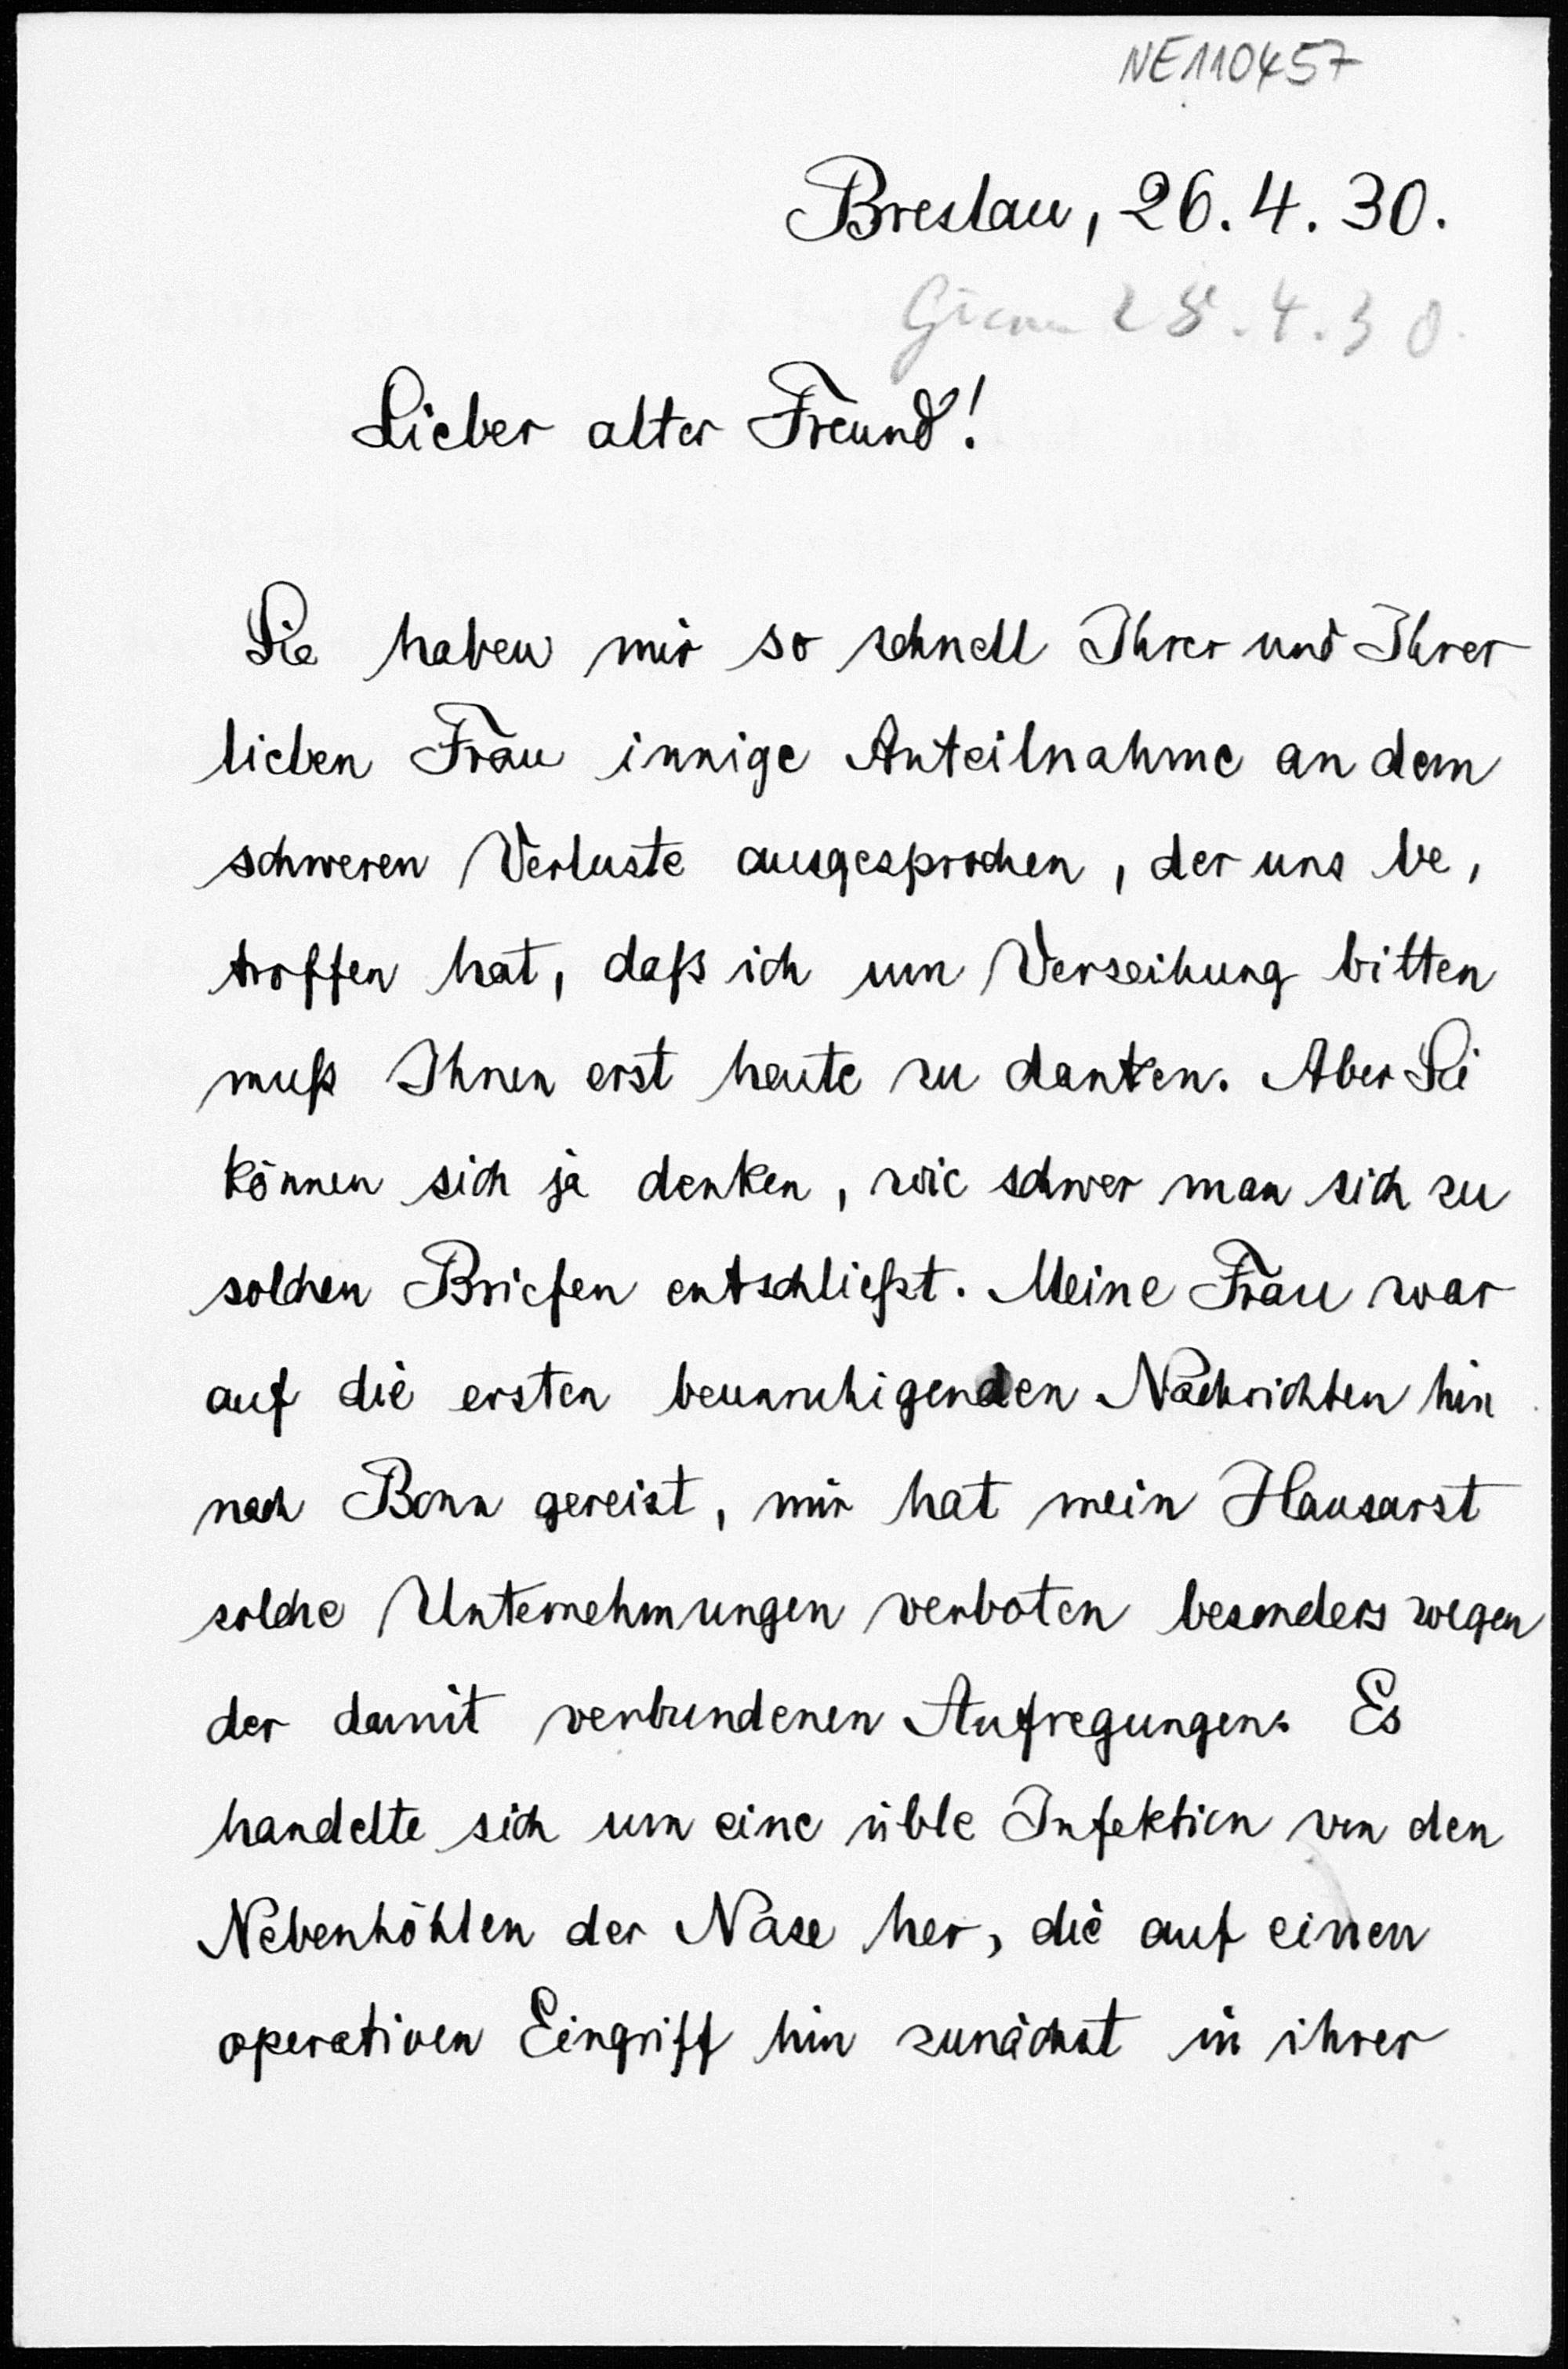 NE110457
Breslau, 26. 4. 30.
28. 4. 30.
Lieber alter Freund!
Sie haben mir so schnell Ihrer und Ihrer
lieben Frau innige Anteilnahme an dem
schweren Verluste ausgesprochen, der uns be,
troffen hat, daß ich um Verzeihung bitten
muß Ihnen erst heute zu danken. Aber Sie
können sich ja denken, wie schwer man sich zu
solchen Briefen entschließt. Meine Frau war
auf die ersten beunruhigenden Nachrichten hin
nach Bonn gereist, mir hat mein Hausarzt
solche Unternehmungen verboten besonders wegen
der damit verbundenen Aufregungen. Es
handelte sich um eine üble Infektion von den
Nebenhöhlen der Nase her, die auf einen
operativen Eingriff hin zunächst in ihrer